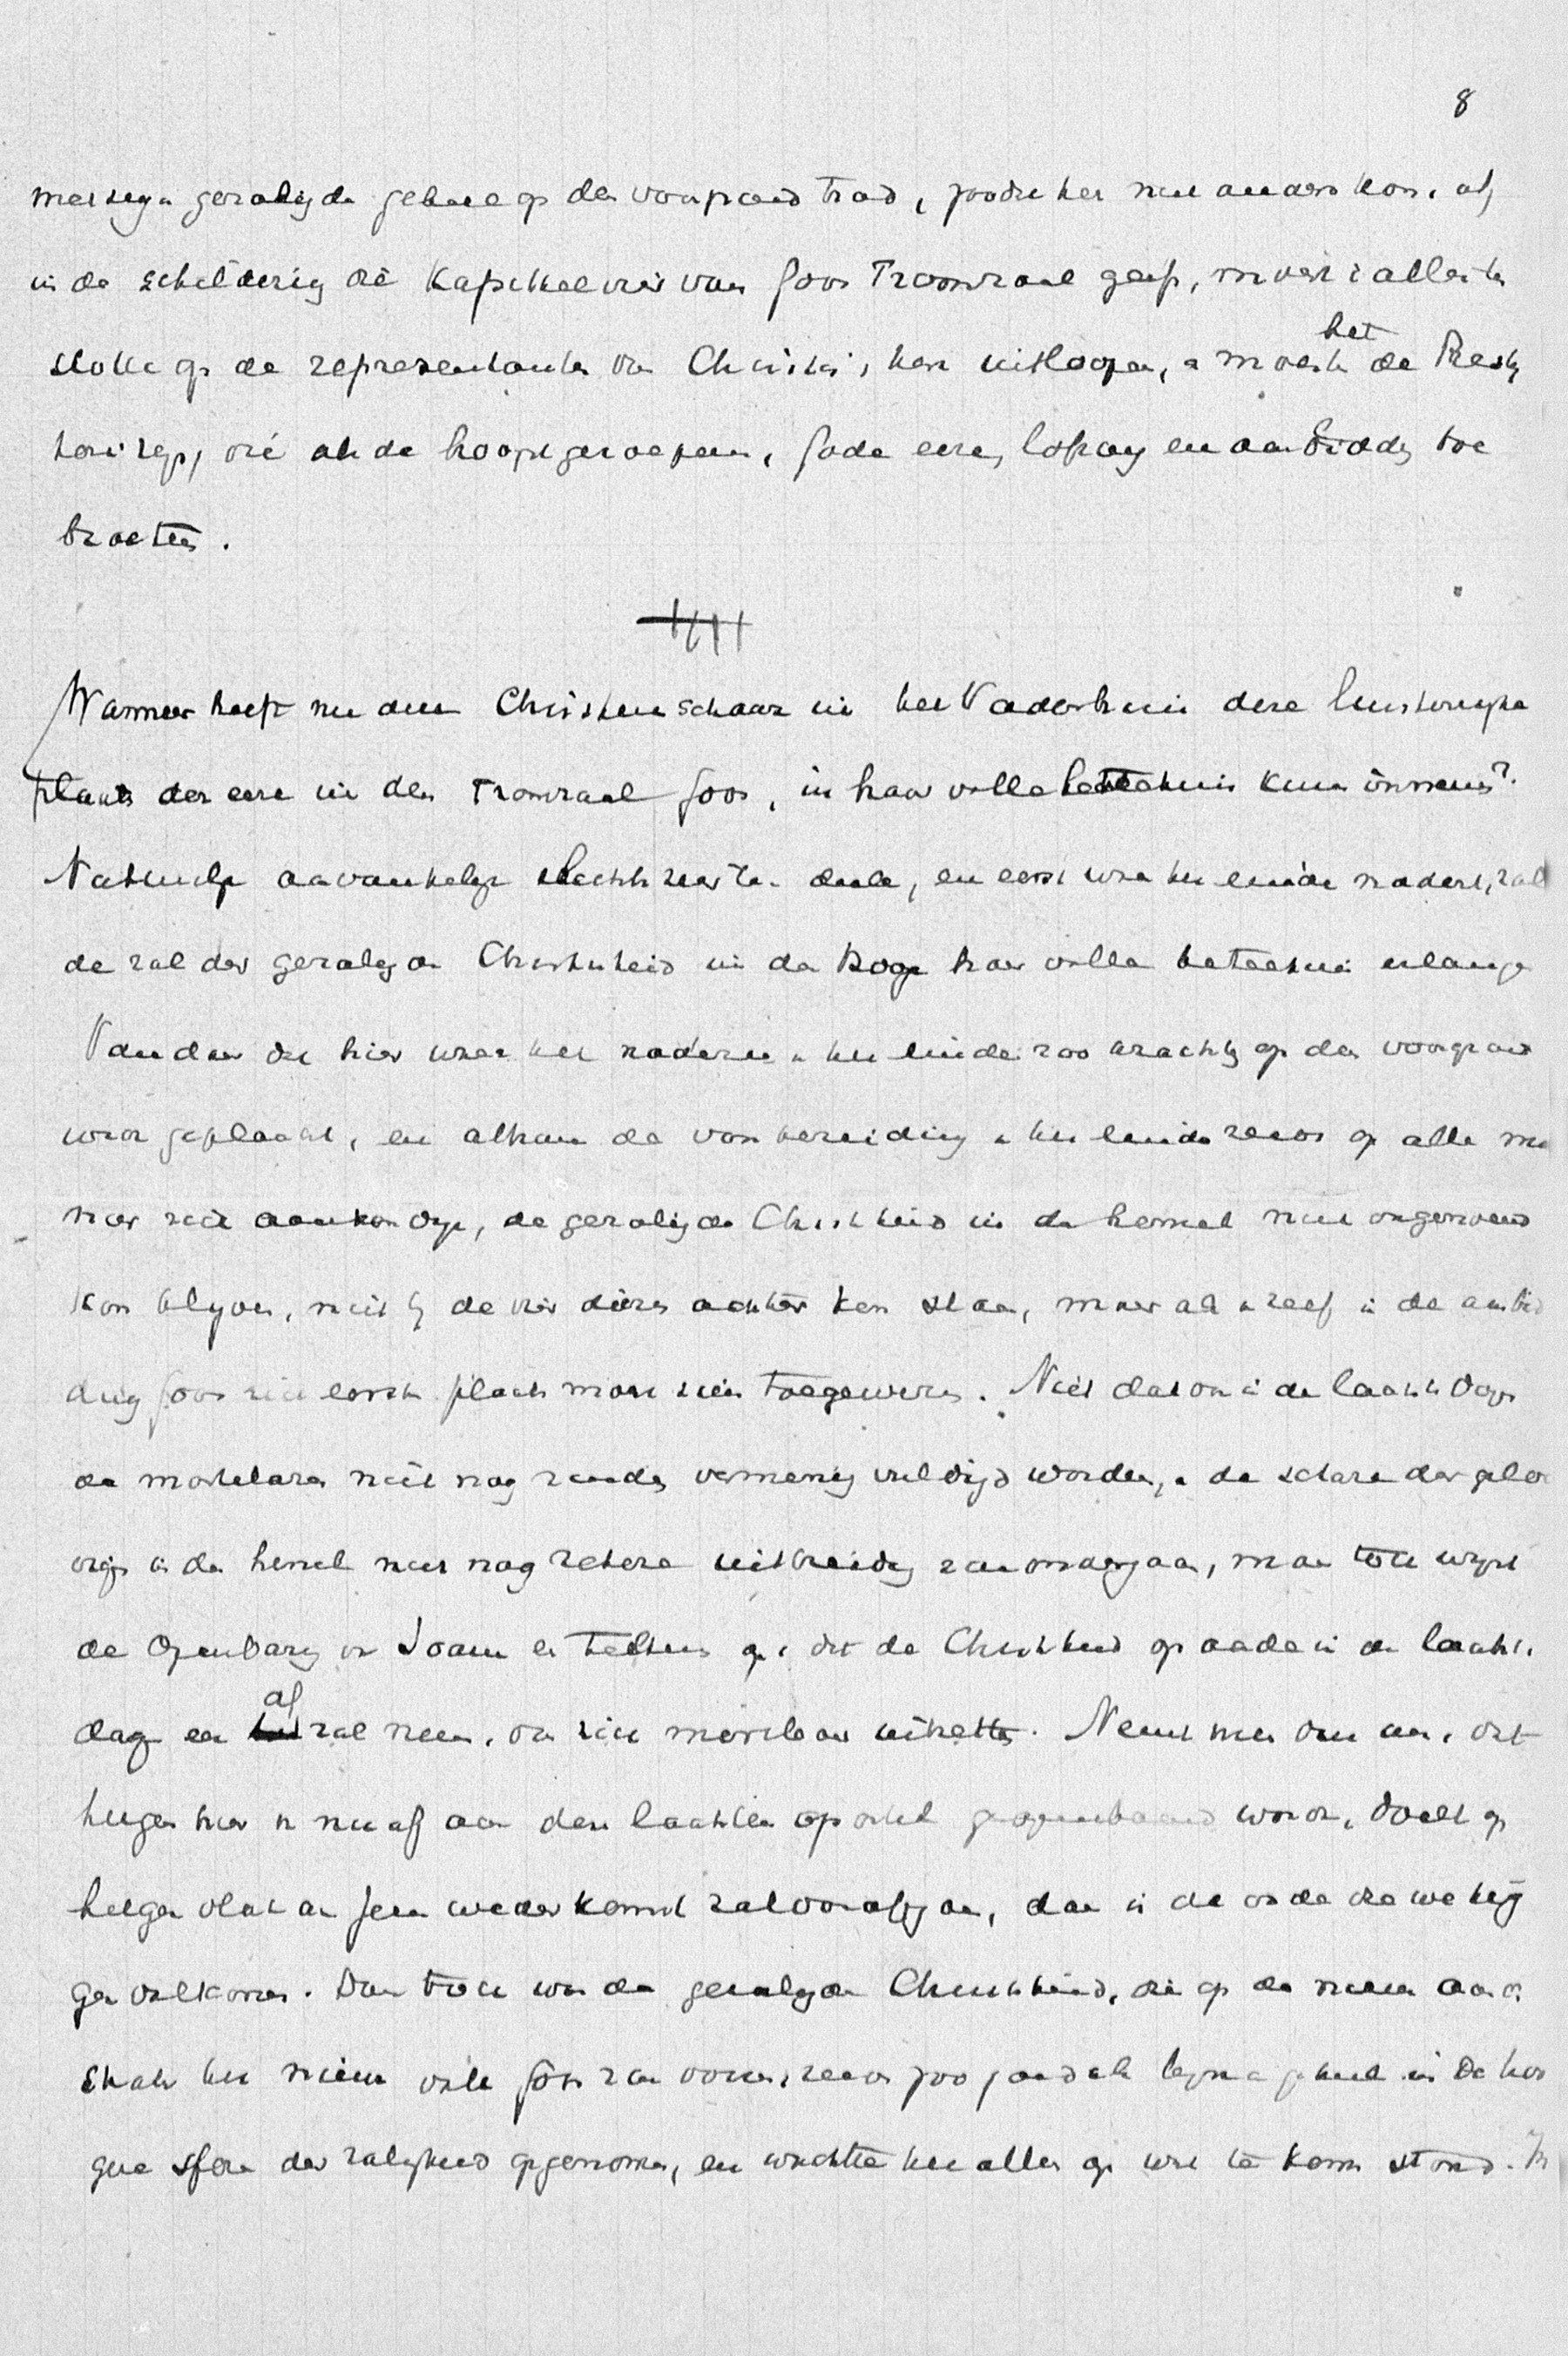 8
op den voorgrond trad, zoodat het niet anders kon, of
in de schilderig die Kapittel vier van Gods Troonzaal geeft, moest alles ten
slotte op de representanten van Christus' kerk uitloopen, en moesten het de Presby
teri zijn, die als de hoofdgroepen, Gode eere, lofzang en aanbidding toe
brachten.
Wanneer heeft nu deze Christenschaar in het Vaderhuis deze luisterrijke
plaats der eere in den Troonzaal Gods, in haar volle beteekenis kunnen innemen?
Natuurlijk aanvankelijk slechts zeer ten deele, en eerst waar het einde nadert, zal
de zaal der gezaligde Christenheid in den hooge haar volle beteekenis erlangen
Vandaar dat hier waar het naderen van het einde zoo krachtig op den voorgrond
wordt geplaatst, en de voorbereiding van het einde reeds op alle ma
nier zich aankondigt, de gezaligde Christenheid in de hemel niet ongenoemd
kon blijven, niet bij de vier dieren achter kon staan, maar als van zelf in de aanbid
ding Gods de eerste plaats moest zien toegewezen. Niet dat ook in de laatste dagen
de martelaren niet nog zouden vermenigvuldigd worden, en de schare der geloo
vigen in de hemel niet nog zekere uitbreiding zou ondergaan, maar toch wijst
de Openbaring van Joannes er telkens op, dat de Christenheid op aarde in de laatste
dagen een af zal nemen, en zich merkbaar uitzetten. Neemt men dan aan, dat
hetgeen hier van nu af aan den laatsten apostel geopenbaard wordt, doelt op
hetgeen vlak aan Jezus wederkomst zal voorafgaan, dan is de orde
volkomen. Dan toch was de gezaligde Christenheid, die op de nieuwe aarde
straks het nieuwe volk Gods zou vormen, reeds zoo goed als bijna geheel in de hoo
gere sfeer der zaligheid opgenomen, en wachtte het alles op wat te komen stond. In